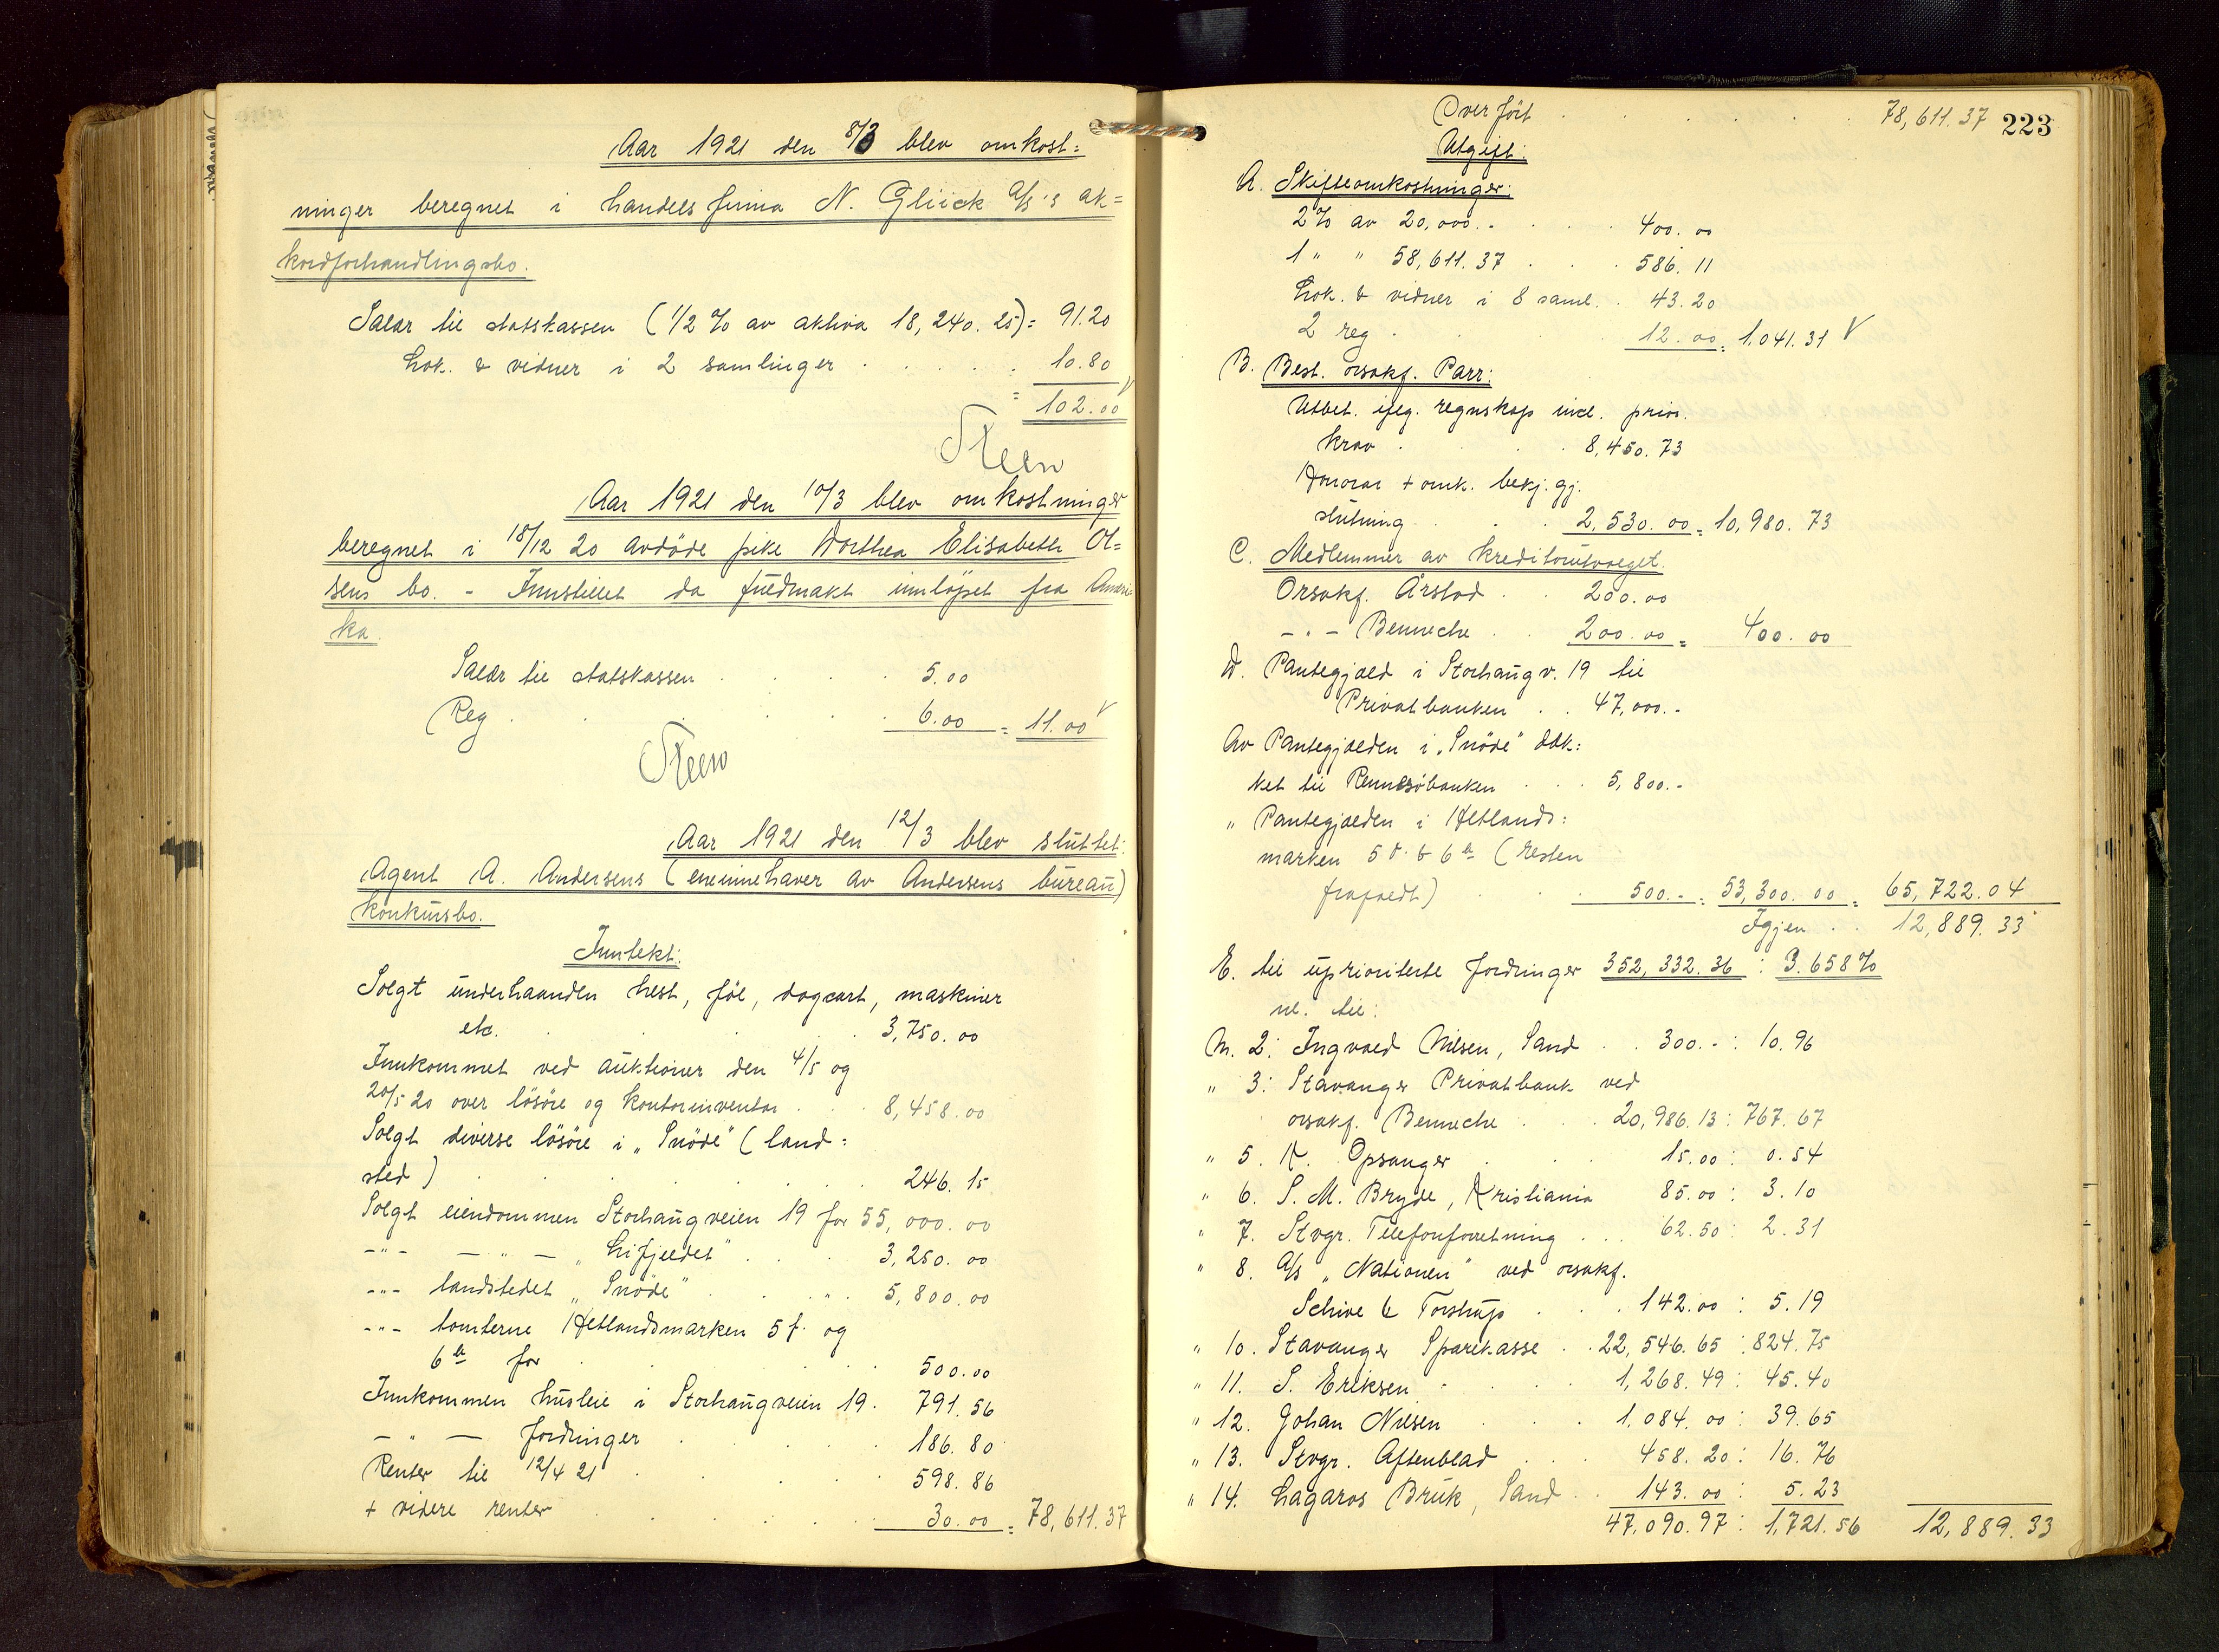 Aar 1921 den 8/3 blev omkost=
ninger beregnet i handelsfirma N. Glück A/S's ak=
kordforhandlingsbo.
Salær til statskassen (1/2 % av aktiva 18,240.25) = 91.20
Lok. & vidner i 2 samlinger . . . . . 10.80
= 102.00 V
Steen
Aar 1921 den 10/3 blev omkostninger
beregnet i 18/12 20 avdöde pike Dorthea Elisabeth Ol=
sens bo. - Innstillet da fuldmakt innlöpet fra Ameri=
ka.
Salær til statskassen . . . . 5.00
Reg . . . . . 6.00 = 11.00 V
Steen
Aar 1921 den 12/3 blev sluttet:
Agent A. Andersens (eneinnehaver av Andersens bureau)
konkursbo.
Inntekt:
Solgt underhaanden hest, föl, dogcart, maskiner
etc. . . . . 3,750.00
Innkommet ved auktioner den 4/5 og
20/5 20 over lösöre og kontorinventar . . . 8,458.00
Solgt diverse lösöre i „Snöde" (land=
sted) . . . . . . 246.15
Solgt eiendommen Storhaugveien 19 for 55,000.00
-"- — " — „Lifjeldet" . . . 3,250.00
-"- landstedet „Snöde" . . . . 5,800.00
-"- tomterne Hetlandsmarken 5 f. og
6 b for . . . . . . 500.00
Innkommen husleie i Storhaugveien 19 . 791.56
— " — fordringer . . . . . 186.80
Renter til 12/4 21 . . . . . 598.86
+ videre renter . . . . . . 30.00 = 78,611.37
Overfört . . . . . . 78,611.37
223
Utgift:
A. Skifteomkostninger:
2 % av 20,000.- . . . 400.00
1 " " 58,611.37 . . . 586.11
Lok. & vidner i 8 saml. . 43.20
2 reg . . . 12.00 = 1.041.31 V
B. Best. orsakf. Parr:
Utbet. iflg. regnskap incl. prior.
krav . . . . 8,450.73
Honorar + omk. bekj. gj.
slutning . . . 2,530.00 = 10,980.73
C. Medlemmer av kreditorutvalget.
Orsakf. Årstad . . 200.00
- " - Benneche . . 200.00 = 400.00
D. Pantegjæld i Storhaugv. 19 til
Privatbanken . . 47,000.-
Av Pantegjælden i „Snöde" dæk=
ket til Rennesöbanken . . . 5,800.-
" Pantegjælden i Hetlands=
marken 5 f. & 6 b (resten
frafaldt) . . . 500.- = 53,300.00 = 65,722.04
Igjen . . 12,889.33
E. til uprioriterte fordringer 352,332.36 : 3.658 %
nl. til:
N. 2: Ingvald Nilsen, Sand . . 300.- : 10.96
" 3: Stavanger Privatbank ved
orsakf. Benneche . . . 20,986.13 : 767.67
" 5. K. Opsanger . . . 15.00 : 0.54
" 6. S. M. Bryde, Kristiania 85.00 : 3.10
" 7. Stvgr. Telefonforretning . . . 62.50 : 2.31
" 8. A/S „Nationen" ved orsakf.
Schive & Torstrup . . . 142.00 : 5.19
" 10. Stavanger Sparekasse . . 22,546.65 : 824.75
" 11. S. Eriksen . . . . 1,268.49 : 45.40
" 12. Johan Nilsen . . . 1.084.00 : 39.65
" 13. Stvgr. Aftenblad . . . 458.20 : 16.76
" 14. Lagaros Bruk, Sand . . 143.00 : 5.23
47,090.97 : 1,721.56 12,889.33